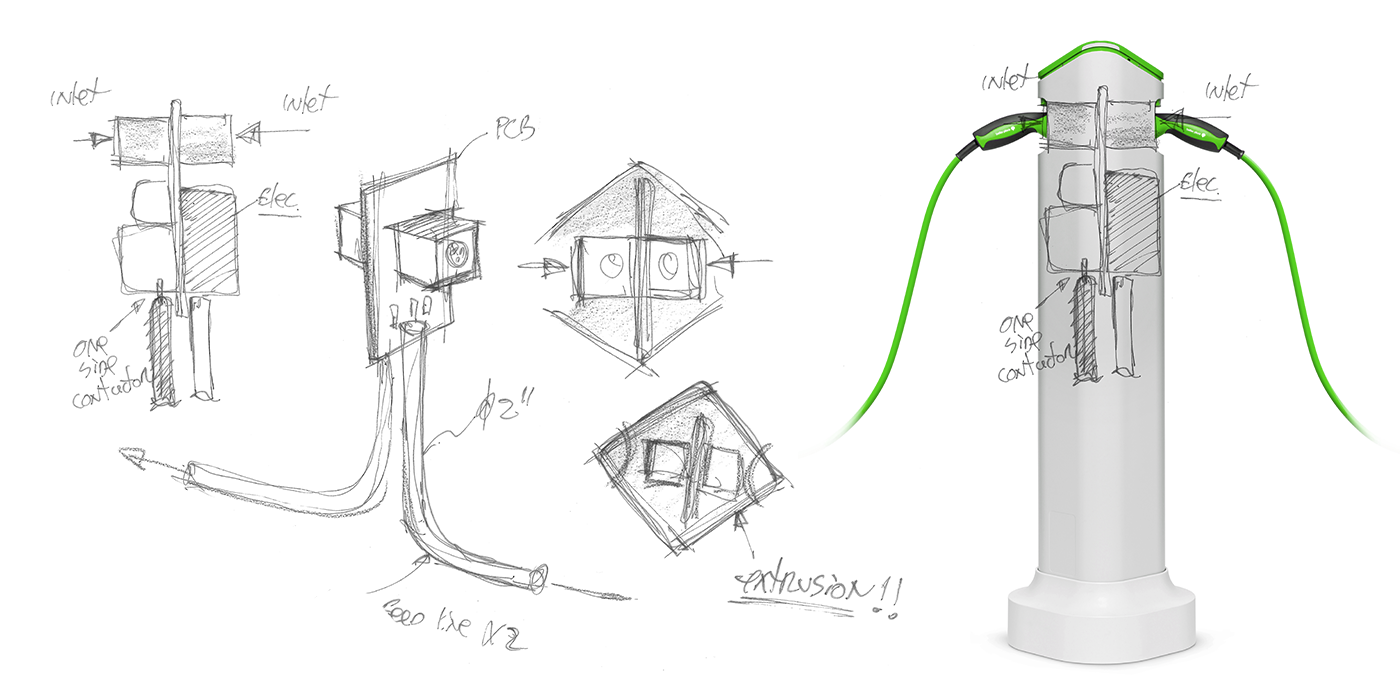 inlet
inlet
PCB
Elec.
one
side
contactor
Ø 2"
Feed line X2
extrusion!!
inlet
inlet
Elec.
one
side
contactor